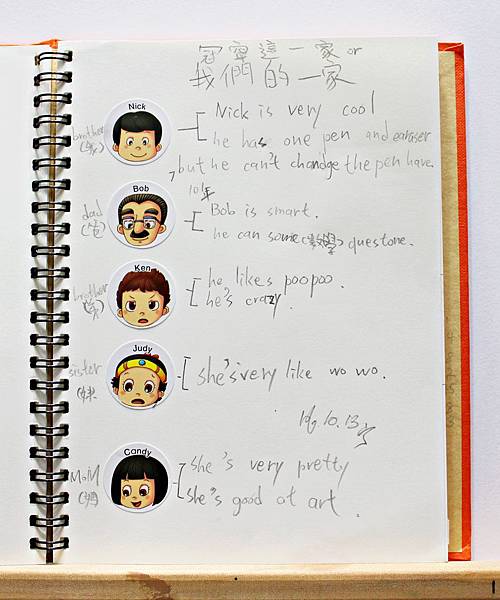 冠寧這一家 or
我們的一家
Nick
brother
Nick is very cool
he has one pen and earaser
, but he can't chandge the pen have
10年
Bob
dad
(爸)
Bob is smart.
he can some (數學) questone.
Ken
brother
he likes poopoo.
he's crazy.
Judy
sister
(妹)
she's very like wo wo.
10.13
Candy
MoM
(媽)
she's very pretty
she's good at art.